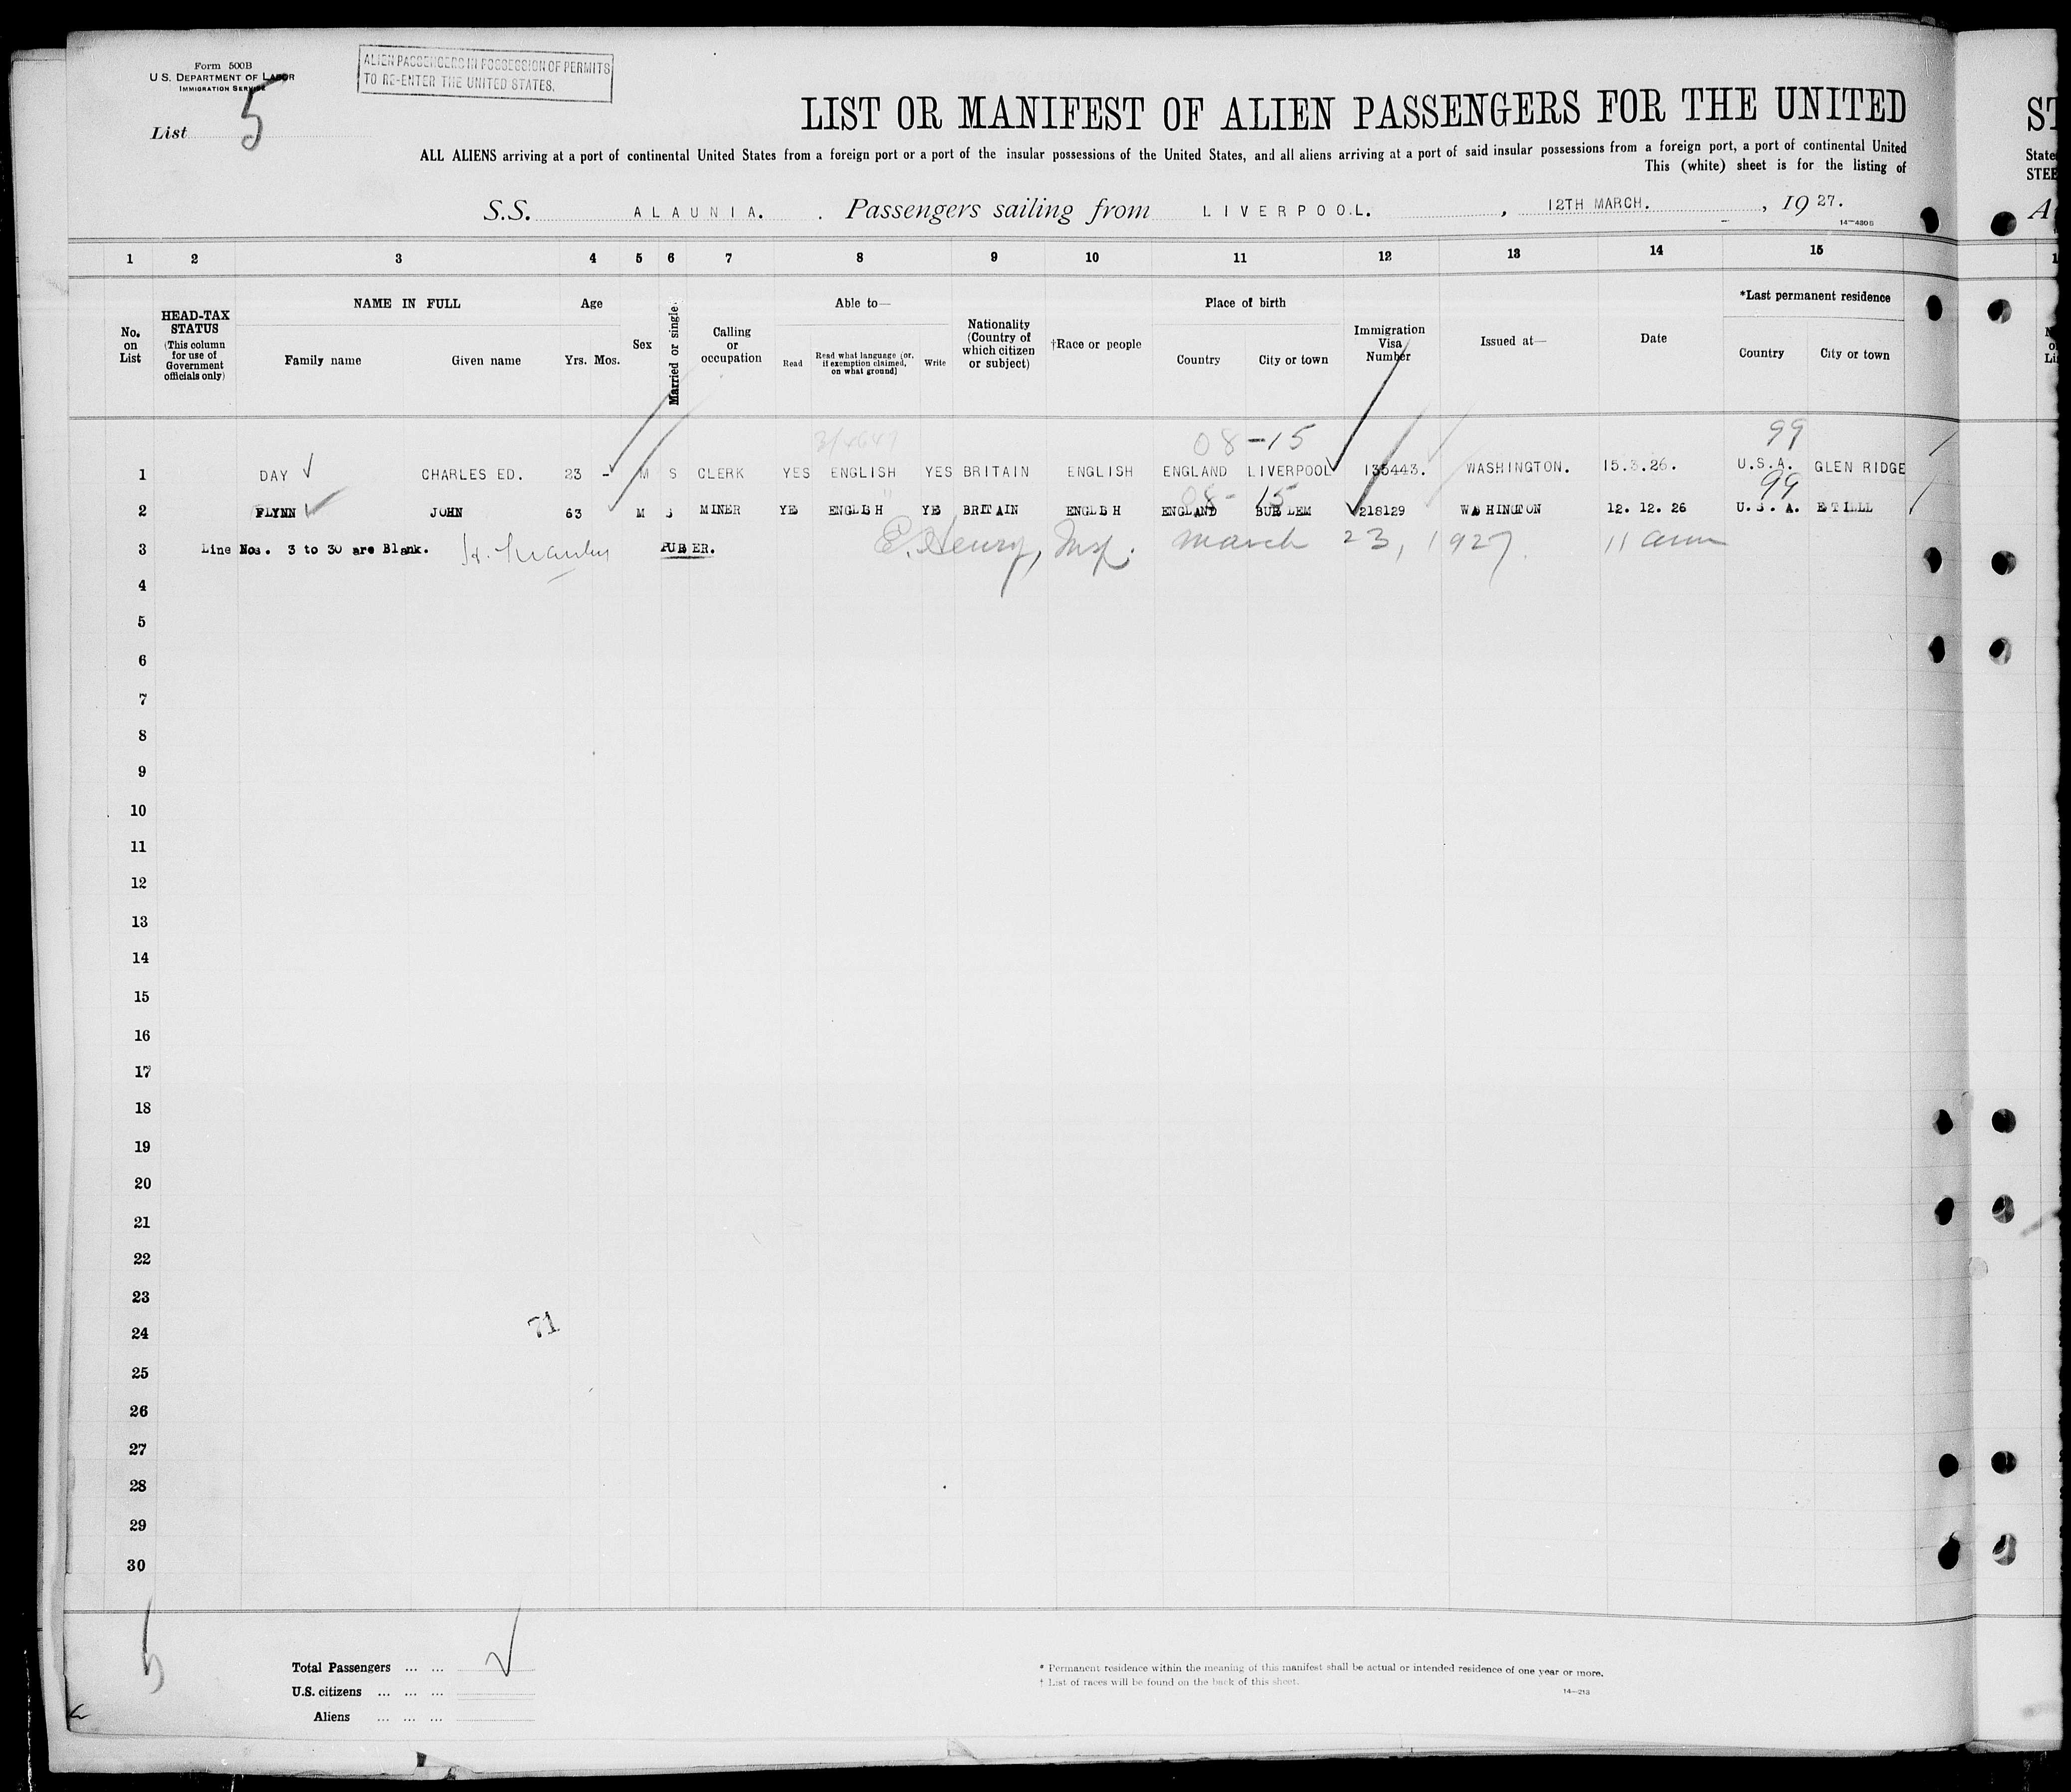 Form 500B
U.S. DEPARTMENT OF LABOR
IMMIGRATION SERVICE
ALIEN PASSENGERS IN POSSESSION OF PERMITS
TO RE-ENTER THE UNITED STATES.
List 5
LIST OR MANIFEST OF ALIEN PASSENGERS FOR THE UNITED
ST
ALL ALIENS arriving at a port of continental United States from a foreign port or a port of the insular possessions of the United States, and all aliens arriving at a port of said insular possessions from a foreign port, a port of continental United
State
This (white) sheet is for the listing of
STEE
S.S. ALAUNIA. Passengers sailing from LIVERPOOL. , 12TH MARCH. , 19 27.
14—430B
1 2 3 4 5 6 7 8 9 10 11 12 13 14 15
No. on List
HEAD-TAX STATUS (This column for use of Government officials only)
NAME IN FULL
Family name Given name
Age
Yrs. Mos.
Sex
Married or single.
Calling or occupation
Able to—
Read
Read what language (or, if exemption claimed, on what ground)
Write
Nationality (Country of which citizen or subject)
†Race or people
Place of birth
Country City or town
Immigration Visa Number
Issued at—
Date
*Last permanent residence
Country City or town
08 -15 99
1 DAY CHARLES ED. 23 - M S CLERK YES ENGLISH YES BRITAIN ENGLISH ENGLAND LIVERPOOL 135443. WASHINGTON. 15.3.26. U.S.A. GLEN RIDGE
08- 15 99
2 FLYNN JOHN 63 M S MINER YE ENGLISH YE BRITAIN ENGLISH ENGLAND BURLEM 218129 WASHINGTON 12. 12. 26 U.S.A. ETILLL
3 Line Nos. 3 to 30 are Blank. PURER. E. Henry, Insp. March 23, 1927. 11 am
4
5
6
7
8
9
10
11
12
13
14
15
16
17
18
19
20
21
22
23
71
24
25
26
27
28
29
30
5
Total Passengers ... ...
U.S. citizens ... ... ...
Aliens ... ... ...
* Permanent residence within the meaning of this manifest shall be actual or intended residence of one year or more.
† List of races will be found on the back of this sheet.
14—213